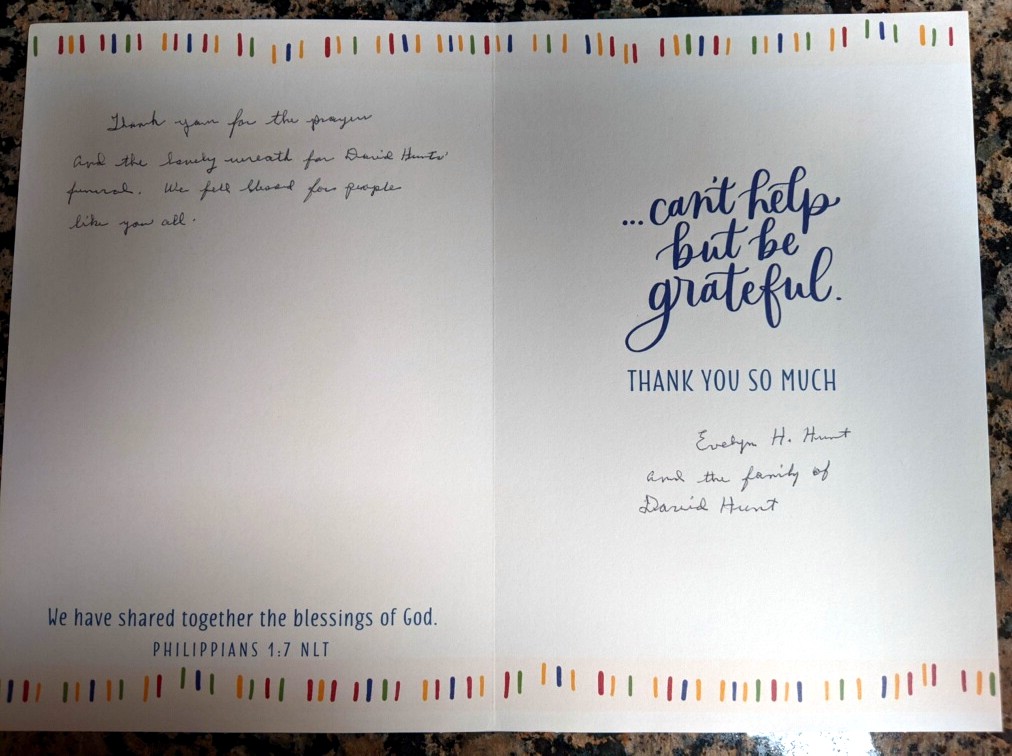 Thank you for the prayers
and the lovely wreath for David Hunts'
funeral. We felt blessed for people
like you all.
We have shared together the blessings of God.
PHILIPPIANS 1:7 NLT
...can't help
but be
grateful.
THANK YOU SO MUCH
Evelyn H. Hunt
and the family of
David Hunt